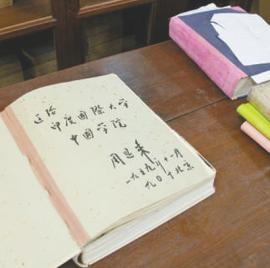 送给
印度国際大学
中国学院
周恩来
一九五九年十一月
九日于北京